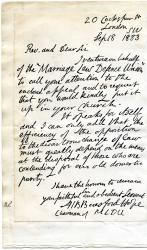 20 Cockspur St
London
SW
Sep 18 1883
Rev. and Dear Sir
I venture on behalf
of the "Marriage Law Defence Union"
to call your attention to the
enclosed appeal and to request
that you would kindly put it
up in your Church.
It speaks for itself
and I can only add that the
efficiency of the opposition
to the disastrous change of Law
must greatly depend on the means
at the disposal of those who are
contending for our old domestic
purity.
I have the honour to remain
your faithful and obedient Servant
A J B Beresford Hope
Chairman of MLDU